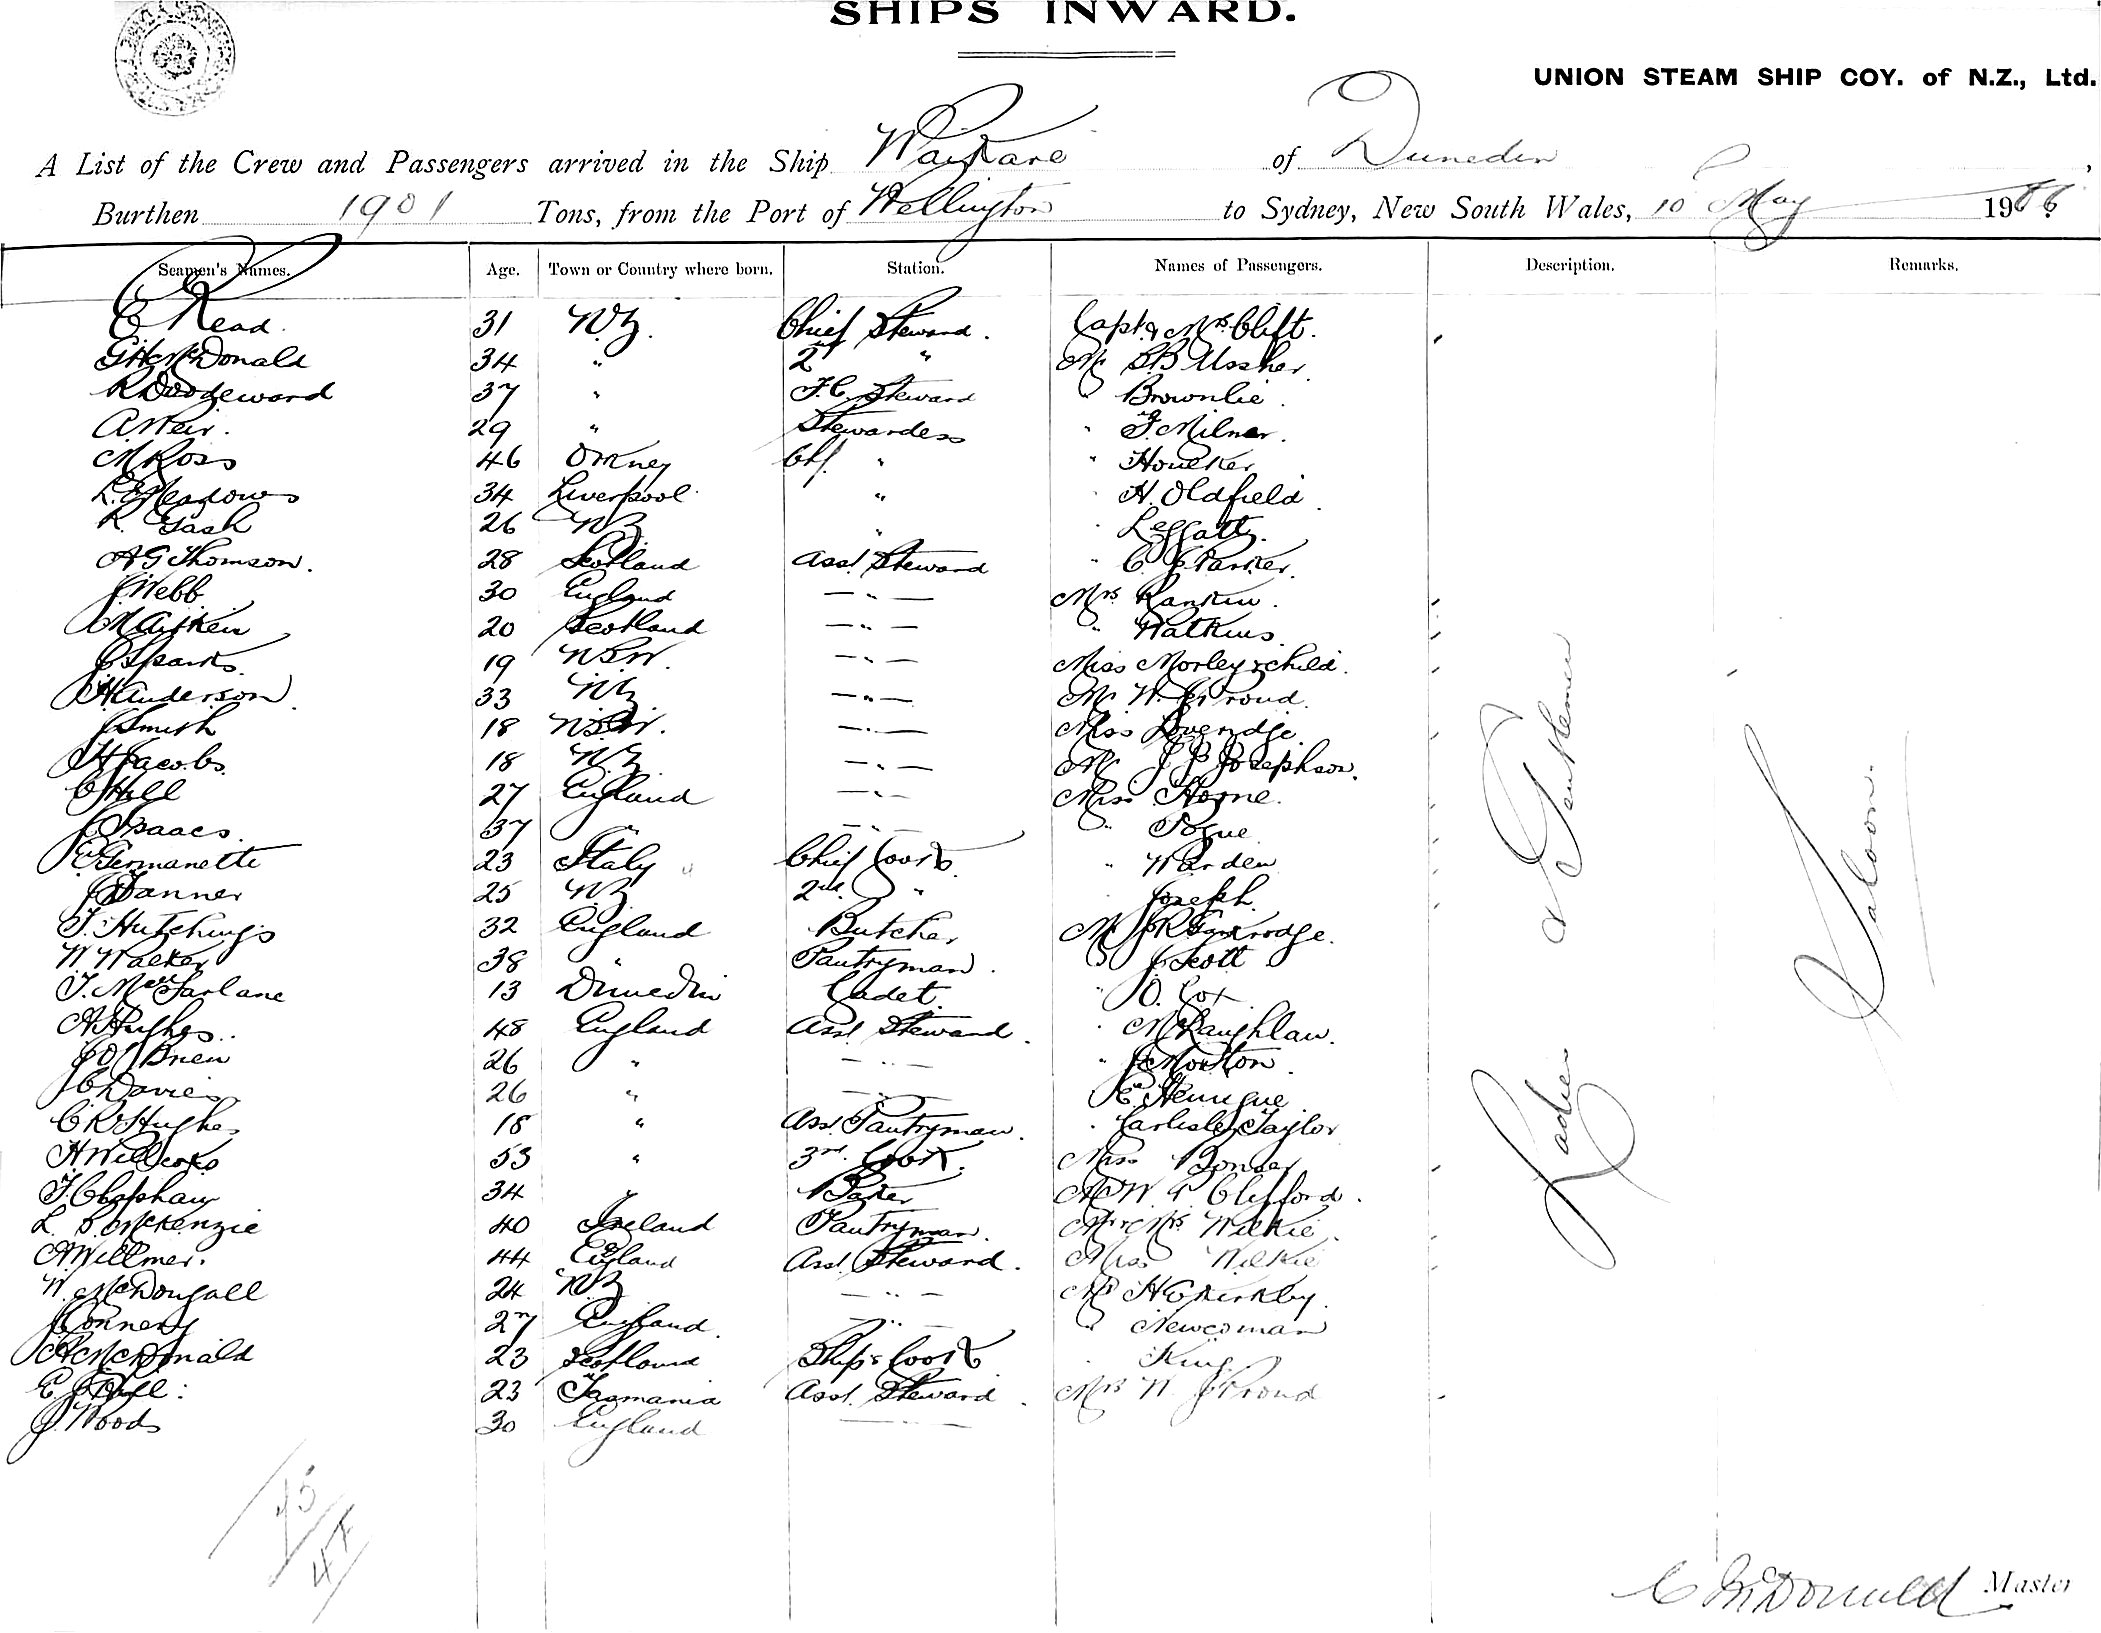 SHIPS INWARD.
UNION STEAM SHIP COY. of N.Z., Ltd.
A List of the Crew and Passengers arrived in the Ship Waikare of Dunedin,
Burthen 1901 Tons, from the Port of Wellington to Sydney, New South Wales, 10 May 1906
Seamen's Names. Age. Town or Country where born. Station. Names of Passengers. Description. Remarks.
C Read. 31 N.Z. Chief Steward. Capt & Mrs Clift.
G H McDonald 34 " 2d " Mr S B Ussher
R Dodgeward 37 " F.C. Steward " Brownlie.
A Weir. 29 " Stewardess " F. Milner.
M Ross 46 Orkney " "
L. E Meadows 34 Liverpool " " H. Oldfield
R. Gash 26 NZ " " Leggatt.
A G Thomson. 28 Scotland Asst Steward " C J Parker.
J Webb 30 England — " — Mrs Rankin.
Aitken 20 Scotland — " — " Watkins
J Sparks. 19 N.S.W. — " — Miss Morley & child.
H Anderson 33 NZ — " — Mr W. J Proud.
J Smith 18 N.S.W. — " — Miss Loveridge
H Jacobs 18 N.Z. — " — Mr J P Josephson.
C Hill 27 England — " — Miss Horne.
J Isaacs. 37 " — " — " Pogue
E Germanette 23 Italy Chief Cook. " Warden
J Danner 25 NZ 2nd " Joseph.
T. Hutchings 32 England Butcher Mr
W Walker 38 " Pantryman. " J Scott
T. McFarlane 13 Dunedin Cadet. " O. Cox
A Hughes.. 48 England Asst Steward. " McLaughlan.
J O'Brien 26 " — " — " J Morton.
J C Davies 26 " — " — E.
C R Hughes 18 " Asst Pantryman. " Carlisle Taylor
H Willcocks 53 " 3rd. Cook. Miss Bonser
T. Clapham 34 " Baker Mr W Clifford.
L. S. McKenzie 40 Ireland Pantryman. Mr & Mrs Wilkie
A Willmer. 44 England Asst Steward. Miss Wilkie
W. McDougall 24 NZ — " — Mr H C Kirkby.
J Connery 27 England. — " — " Newcoman
A McDonald 23 Scotland Ship's Cook " King
E. J 23 Tasmania Asst. Steward. Mrs W. J Proud
J. Woods 30 England
Ladies & Gentlemen
Saloon.
C McDonald Master